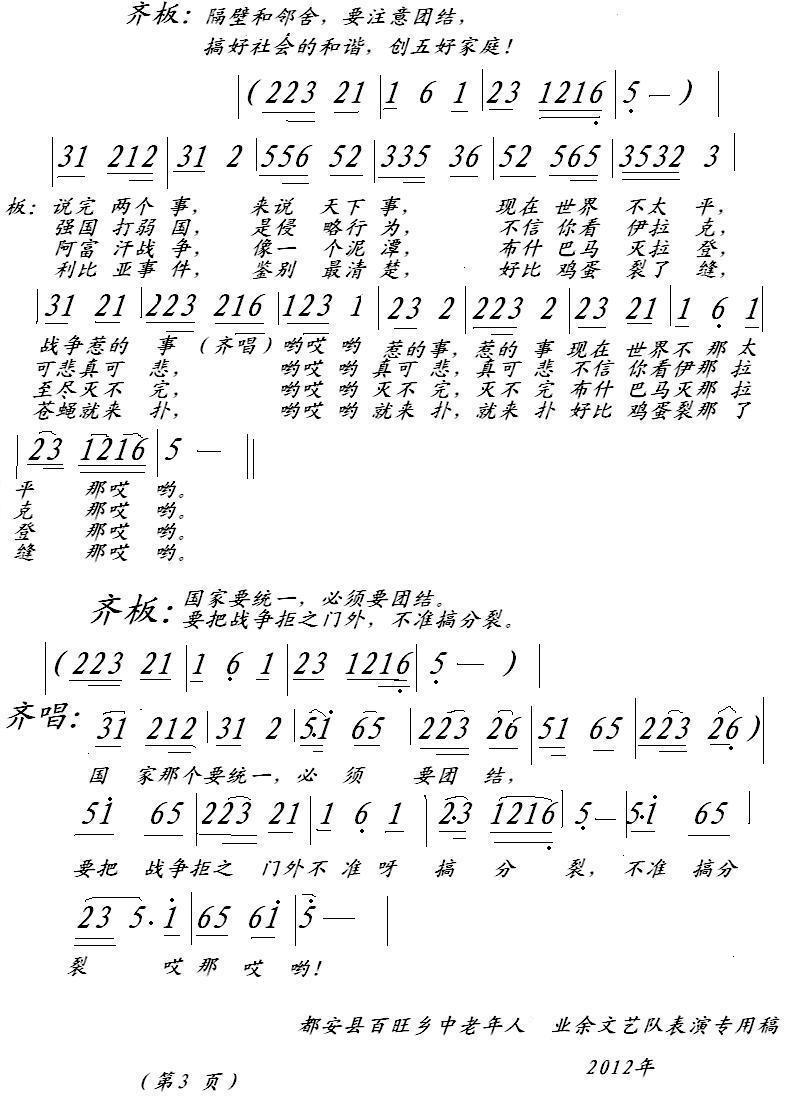 齐板：隔壁和邻舍，要注意团结，
搞好社会的和谐，创五好家庭！
|(223 21|1 6 1|23 1216|5 — )|
|31 212|31 2|556 52|335 36|52 565|3532 3|
板：说完 两个 事， 来说 天下 事， 现在 世界 不太 平，
强国 打弱 国， 是侵 略行 为， 不信 你看 伊拉 克，
阿富 汗战 争， 像一 个泥 潭， 布什 巴马 灭拉 登，
利比 亚事 件， 鉴别 最清 楚， 好比 鸡蛋 裂了 缝，
|31 21|223 216|123 1|23 2|223 2|23 21|1 6 1|
战争惹的 事 （齐唱）哟哎 哟 惹的事，惹的 事 现在 世界不 那 太
可悲真可 悲， 哟哎 哟 真可 悲，真可 悲 不信 你看伊那 拉
至尽灭不 完， 哟哎 哟 灭不 完，灭不 完 布什 巴马灭那 拉
苍蝇就来 扑， 哟哎 哟 就来 扑，就来 扑 好比 鸡蛋裂那 了
|23 1216|5 — ||
平 那哎 哟。
克 那哎 哟。
登 那哎 哟。
缝 那哎 哟。
齐板：国家要统一，必须要团结。
要把战争拒之门外，不准搞分裂。
|(223 21|1 6 1|23 1216|5 — )|
齐唱：31 212|31 2|5·i 65|223 26|51 65|223 26)|
国 家那个要统一，必 须 要团 结，
5i 65|223 21|1 6 1|2·3 1216|5·—|5·i 65|
要把 战争拒之 门外不 准 呀 搞 分 裂，不准 搞分
23 5·i|65 6i|5 — |
裂 哎 那 哎 哟！
都安县百旺乡中老年人 业余文艺队表演专用稿
2012年
（第3 页）